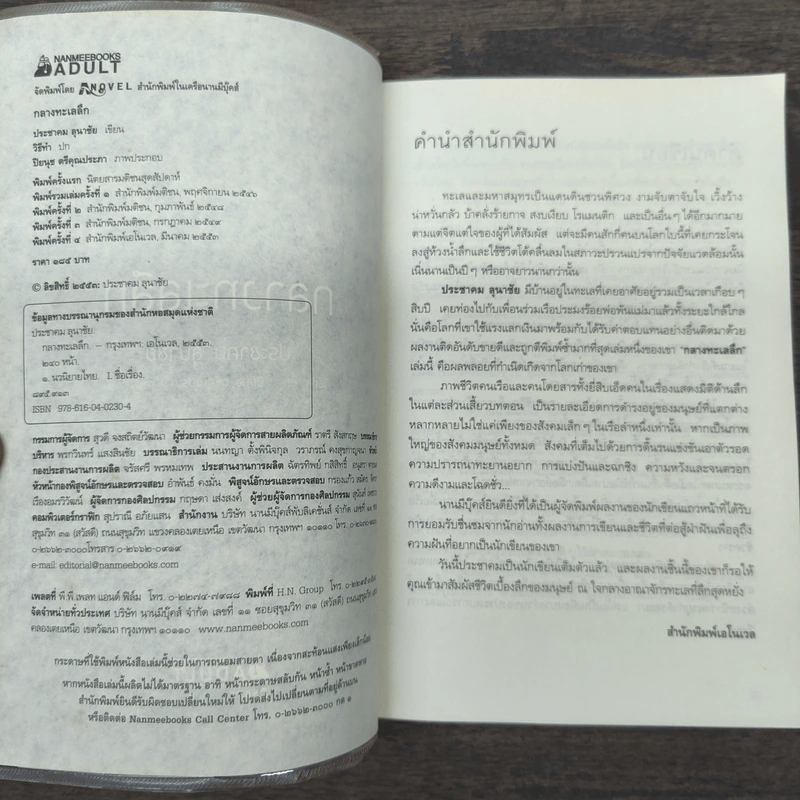 NANMEEBOOKS
ADULT
จัดพิมพ์โดย A NOVEL สำนักพิมพ์ในเครือนานมีบุ๊คส์
กลางทะเลลึก
ประชาคม ลุนาชัย เขียน
วิธีทำ ปก
ปิยนุช ตรีคุณประภา ภาพประกอบ
พิมพ์ครั้งแรก นิตยสารมติชนสุดสัปดาห์
พิมพ์รวมเล่มครั้งที่ ๑ สำนักพิมพ์มติชน, พฤศจิกายน ๒๕๔๖
พิมพ์ครั้งที่ ๒ สำนักพิมพ์มติชน, กุมภาพันธ์ ๒๕๔๘
พิมพ์ครั้งที่ ๓ สำนักพิมพ์มติชน, กรกฎาคม ๒๕๔๙
พิมพ์ครั้งที่ ๔ สำนักพิมพ์เอโนเวล, มีนาคม ๒๕๕๓
ราคา ๑๘๕ บาท
© ลิขสิทธิ์ ๒๕๕๓: ประชาคม ลุนาชัย
ข้อมูลทางบรรณานุกรมของสำนักหอสมุดแห่งชาติ
ประชาคม ลุนาชัย.
กลางทะเลลึก. -- กรุงเทพฯ: เอโนเวล, ๒๕๕๓.
๒๔๐ หน้า.
๑. นวนิยายไทย. I. ชื่อเรื่อง.
๘๙๕.๙๑๓
ISBN 978-616-04-0230-4
กรรมการผู้จัดการ สุวดี จงสถิตย์วัฒนา ผู้ช่วยกรรมการผู้จัดการสายผลิตภัณฑ์ ราตรี สังสกฤษ บรรณาธิการ
บริหาร พรกวินทร์ แสงสินชัย บรรณาธิการเล่ม นนทญา ตั้งพินิจกุล วราภรณ์ คงสุขกาญจนา
กองประสานงานการผลิต จรัสศรี พรหมเทพ ประสานงานการผลิต ฉัตรทิพย์ กสิสิทธิ์
หัวหน้ากองพิสูจน์อักษรและตรวจสอบ อำพันธ์ คงมั่น พิสูจน์อักษรและตรวจสอบ กรองแก้ว สมิตร
เรืองอมรวิวัฒน์ ผู้จัดการกองศิลปกรรม กฤษดา แสงสงค์ ผู้ช่วยผู้จัดการกองศิลปกรรม
คอมพิวเตอร์กราฟิก สุปราณี อภัยแสน สำนักงาน บริษัท นานมีบุ๊คส์พับลิเคชันส์ จำกัด เลขที่ ๑๑ ซอย
สุขุมวิท ๓๑ (สวัสดี) ถนนสุขุมวิท แขวงคลองเตยเหนือ เขตวัฒนา กรุงเทพฯ ๑๐๑๑๐ โทร.
๐-๒๖๖๒-๓๐๐๐ โทรสาร ๐-๒๖๖๒-๐๙๑๙
e-mail: editorial@nanmeebooks.com
เพลตที่ พี.พี.เพลท แอนด์ ฟิล์ม โทร. ๐-๒๒๗๔-๗๙๘๘ พิมพ์ที่ H.N. Group โทร.
จัดจำหน่ายทั่วประเทศ บริษัท นานมีบุ๊คส์ จำกัด เลขที่ ๑๑ ซอยสุขุมวิท ๓๑ (สวัสดี) ถนนสุขุมวิท แขวง
คลองเตยเหนือ เขตวัฒนา กรุงเทพฯ ๑๐๑๑๐ www.nanmeebooks.com
กระดาษที่ใช้พิมพ์หนังสือเล่มนี้ช่วยในการถนอมสายตา เนื่องจากสะท้อนแสงเพียงเล็กน้อย
หากหนังสือเล่มนี้ผลิตไม่ได้มาตรฐาน อาทิ หน้ากระดาษสลับกัน หน้าซ้ำ หน้าขาดหาย
สำนักพิมพ์ยินดีรับผิดชอบเปลี่ยนใหม่ให้ โปรดส่งไปเปลี่ยนตามที่อยู่ด้านบน
หรือติดต่อ Nanmeebooks Call Center โทร. ๐-๒๖๖๒-๓๐๐๐ กด ๑
คำนำสำนักพิมพ์
ทะเลและมหาสมุทรเป็นแดนดินชวนพิศวง งามจับตาจับใจ เวิ้งว้าง
น่าหวั่นกลัว บ้าคลั่งร้ายกาจ สงบเงียบ โรแมนติก และเป็นอื่นๆ ได้อีกมากมาย
ตามแต่จิตแต่ใจของผู้ที่ได้สัมผัส แต่จะมีคนสักกี่คนบนโลกใบนี้ที่เคยกระโจน
ลงสู่ห้วงน้ำลึกและใช้ชีวิตโต้คลื่นลมในสภาวะปรวนแปรจากปัจจัยแวดล้อมนั้น
เนิ่นนานเป็นปีๆ หรืออาจยาวนานกว่านั้น
ประชาคม ลุนาชัย มีบ้านอยู่ในทะเลที่เคยอาศัยอยู่รวมเป็นเวลาเกือบๆ
สิบปี เคยท่องไปกับเพื่อนร่วมเรือประมงร้อยพ่อพันแม่มาแล้วทั้งระยะใกล้ไกล
นั่นคือโลกที่เขาใช้แรงแลกเงินมาพร้อมกับได้รับค่าตอบแทนอย่างอื่นติดมาด้วย
ผลงานติดอันดับขายดีและถูกตีพิมพ์ซ้ำมากที่สุดเล่มหนึ่งของเขา "กลางทะเลลึก"
เล่มนี้ คือผลพลอยที่กำเนิดเกิดจากโลกเก่าของเขา
ภาพชีวิตคนเรือและคนโดยสารทั้งยี่สิบเอ็ดคนในเรื่องแสดงมิติด้านลึก
ในแต่ละส่วนเสี้ยวบทตอน เป็นรายละเอียดการดำรงอยู่ของมนุษย์ที่แตกต่าง
หลากหลายไม่ใช่แค่เพียงของสังคมเล็กๆ ในเรือลำหนึ่งเท่านั้น หากเป็นภาพ
ใหญ่ของสังคมมนุษย์ทั้งหมด สังคมที่เต็มไปด้วยการดิ้นรนแข่งขันเอาตัวรอด
ความปรารถนาทะยานอยาก การแบ่งปันและฉกชิง ความหวังและจนตรอก
ความดีงามและโฉดชั่ว...
นานมีบุ๊คส์ยินดียิ่งที่ได้เป็นผู้จัดพิมพ์ผลงานของนักเขียนแถวหน้าที่ได้รับ
การยอมรับชื่นชมจากนักอ่านทั้งผลงานการเขียนและชีวิตที่ต่อสู้ฝ่าฟันเพื่อลุถึง
ความฝันที่อยากเป็นนักเขียนของเขา
วันนี้ประชาคมเป็นนักเขียนเต็มตัวแล้ว และผลงานชิ้นนี้ของเขาก็รอให้
คุณเข้ามาสัมผัสชีวิตเบื้องลึกของมนุษย์ ณ ใจกลางอาณาจักรทะเลที่ลึกสุดหยั่ง
สำนักพิมพ์เอโนเวล